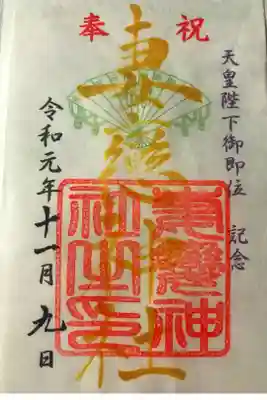 奉祝
天皇陛下御即位 記念
妻戀神社
妻戀神
社之印
令和元年十一月 九日